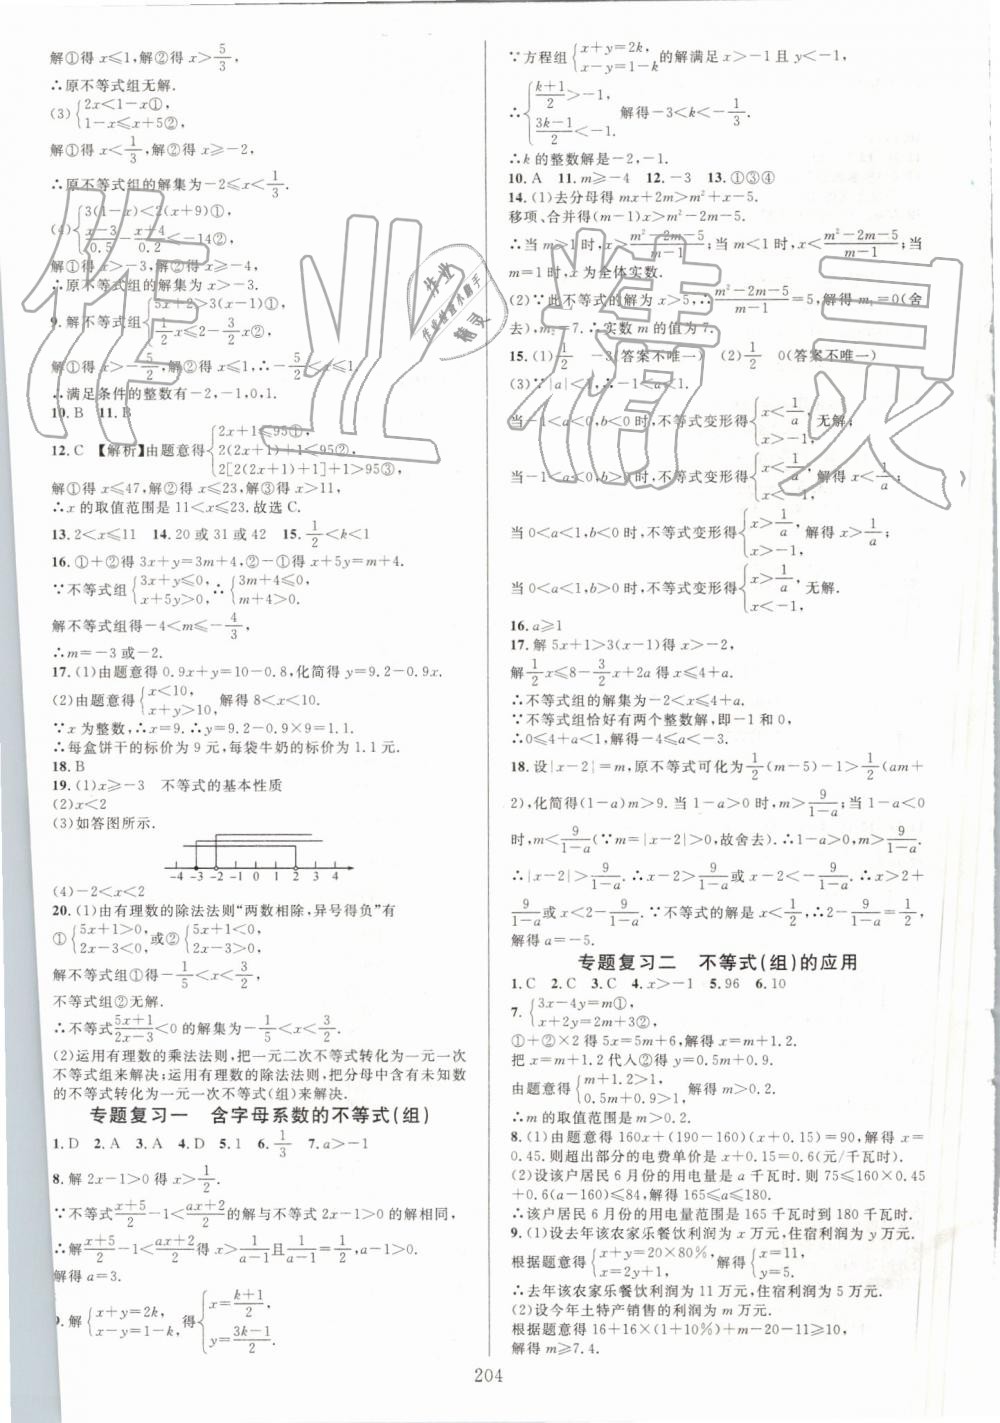 解①得 x≤1,解②得 x>5/3,
∴原不等式组无解.
(3){2x<1-x①, 1-x≤x+5②,
解①得 x<1/3,解②得 x≥-2,
∴原不等式组的解集为-2≤x<1/3.
(4){3(1-x)<2(x+9)①, (x-3)/0.5-(x+4)/0.2<-14②,
解①得 x>-3,解②得 x>-4.
∴原不等式组的解集为 x>-3.
9.解不等式组{5x+2>3(x-1)①, 1/2x≤2-3/2x②,
解①得 x>-5/2,解②得 x≤1,∴-5/2<x≤1.
∴满足条件的整数有-2,-1,0,1.
10.B 11.B
12.C 【解析】由题意得{2x+1≤95①, 2(2x+1)+1≤95②, 2[2(2x+1)+1]+1>95③,
解①得 x≤47,解②得 x≤23,解③得 x>11,
∴x的取值范围是 11<x≤23.故选C.
13.2<x≤11 14.20或31或42 15.1/2<k<1
16.①+②得 3x+y=3m+4,②-①得 x+5y=m+4.
∵不等式组{3x+y≤0, x+5y>0, ∴{3m+4≤0, m+4>0.
解不等式组得-4<m≤-4/3,
∴m=-3或-2.
17.(1)由题意得 0.9x+y=10-0.8,化简得 y=9.2-0.9x.
(2)由题意得{x<10, x+y>10, 解得 8<x<10.
∵x为整数,∴x=9.∴y=9.2-0.9×9=1.1.
∴每盒饼干的标价为9元,每袋牛奶的标价为1.1元.
18.B
19.(1)x≥-3 不等式的基本性质
(2)x<2
(3)如答图所示.
-4 -3 -2 -1 0 1 2 3 4
(4)-2<x<2
20.(1)由有理数的除法法则“两数相除,异号得负”有
①{5x+1>0, 2x-3<0, 或②{5x+1<0, 2x-3>0,
解不等式组①得-1/5<x<3/2,
不等式组②无解.
∴不等式(5x+1)/(2x-3)<0的解集为-1/5<x<3/2.
(2)运用有理数的乘法法则,把一元二次不等式转化为一元一次
不等式组来解决;运用有理数的除法法则,把分母中含有未知数
的不等式转化为一元一次不等式(组)来解决.
专题复习一 含字母系数的不等式(组)
1.D 2.A 3.A 4.D 5.1 6.1/3 7.a>-1
8.解 2x-1>0得 x>1/2.
∵不等式(x+5)/2-1<(ax+2)/2的解与不等式 2x-1>0的解相同,
∴解(x+5)/2-1<(ax+2)/2得 x>1/(a-1)且1/(a-1)=1/2,
解得 a=3.
9.解{x+y=2k, x-y=1-k, 得{x=(k+1)/2, y=(3k-1)/2.
∵方程组{x+y=2k, x-y=1-k的解满足 x>-1且 y<-1.
∴{(k+1)/2>-1, (3k-1)/2<-1. 解得-3<k<-1/3.
∴k的整数解是-2,-1.
10.A 11.m≥-4 12.-3 13.①③④
14.(1)去分母得 mx+2m>m²+x-5.
移项、合并得(m-1)x>m²-2m-5.
∴当 m>1时,x>(m²-2m-5)/(m-1);当 m<1时,x<(m²-2m-5)/(m-1);当
m=1时,x为全体实数.
(2)∵此不等式的解为 x>5,∴(m²-2m-5)/(m-1)=5,解得 m₁=0(舍
去),m₂=7.∴实数m的值为7.
15.(1)1/2 -3(答案不唯一) (2)1/2 0(答案不唯一)
(3)∵|a|<1,∴-1<a<1.
当-1<a<0,b>0时,不等式变形得{x<1/a, x>-1, 无解;
当-1<a<0,b<0时,不等式变形得{x<1/a, x<-1, 解得 x<1/a;
当0<a<1,b>0时,不等式变形得{x>1/a, x>-1, 解得 x>1/a;
当0<a<1,b<0时,不等式变形得{x>1/a, x<-1, 无解.
16.a≥1
17.解 5x+1>3(x-1)得 x>-2,
解1/2x≤8-3/2x+2a得 x≤4+a.
∴不等式组的解集为-2<x≤4+a.
∵不等式组恰好有两个整数解,即-1和0,
∴0≤4+a<1,解得-4≤a<-3.
18.设|x-2|=m,原不等式可化为1/2(m-5)-1>1/2(am+
2),化简得(1-a)m>9.当1-a>0时,m>9/(1-a);当1-a<0
时,m<9/(1-a)(∵m=|x-2|>0,故舍去).∴1-a>0,m>9/(1-a).
∴|x-2|>9/(1-a).∴x-2>9/(1-a)或x-2<-9/(1-a).∴x>2+
9/(1-a)或x<2-9/(1-a).∵不等式的解是x<1/2,∴2-9/(1-a)=1/2,
解得 a=-5.
专题复习二 不等式(组)的应用
1.C 2.C 3.C 4.x>-1 5.96 6.10
7.{3x-4y=m①, x+2y=2m+3②,
①+②×2得 5x=5m+6,解得 x=m+1.2.
把 x=m+1.2代入②得 y=0.5m+0.9.
由题意得{m+1.2>0, 0.5m+0.9>0, 解得 m>-1.2.
∴m的取值范围是 m>-1.2.
8.(1)由题意得 160x+(190-160)(x+0.15)=90,解得 x=
0.45.则超出部分的电费单价是 x+0.15=0.6(元/千瓦时).
(2)设该户居民6月份的用电量是a千瓦时.则 75≤160×0.45
+0.6(a-160)≤84,解得 165≤a≤180.
∴该户居民6月份的用电量范围是165千瓦时到180千瓦时.
9.(1)设去年该农家乐餐饮利润为x万元,住宿利润为y万元.
根据题意得{x+y=20×80%, x=2y+1, 解得{x=11, y=5.
∴去年该农家乐餐饮利润为11万元,住宿利润为5万元.
(2)设今年土特产销售的利润为m万元.
根据题意得 16+16×(1+10%)+m-20-11≥10,
解得 m≥7.4.
204
作业精灵